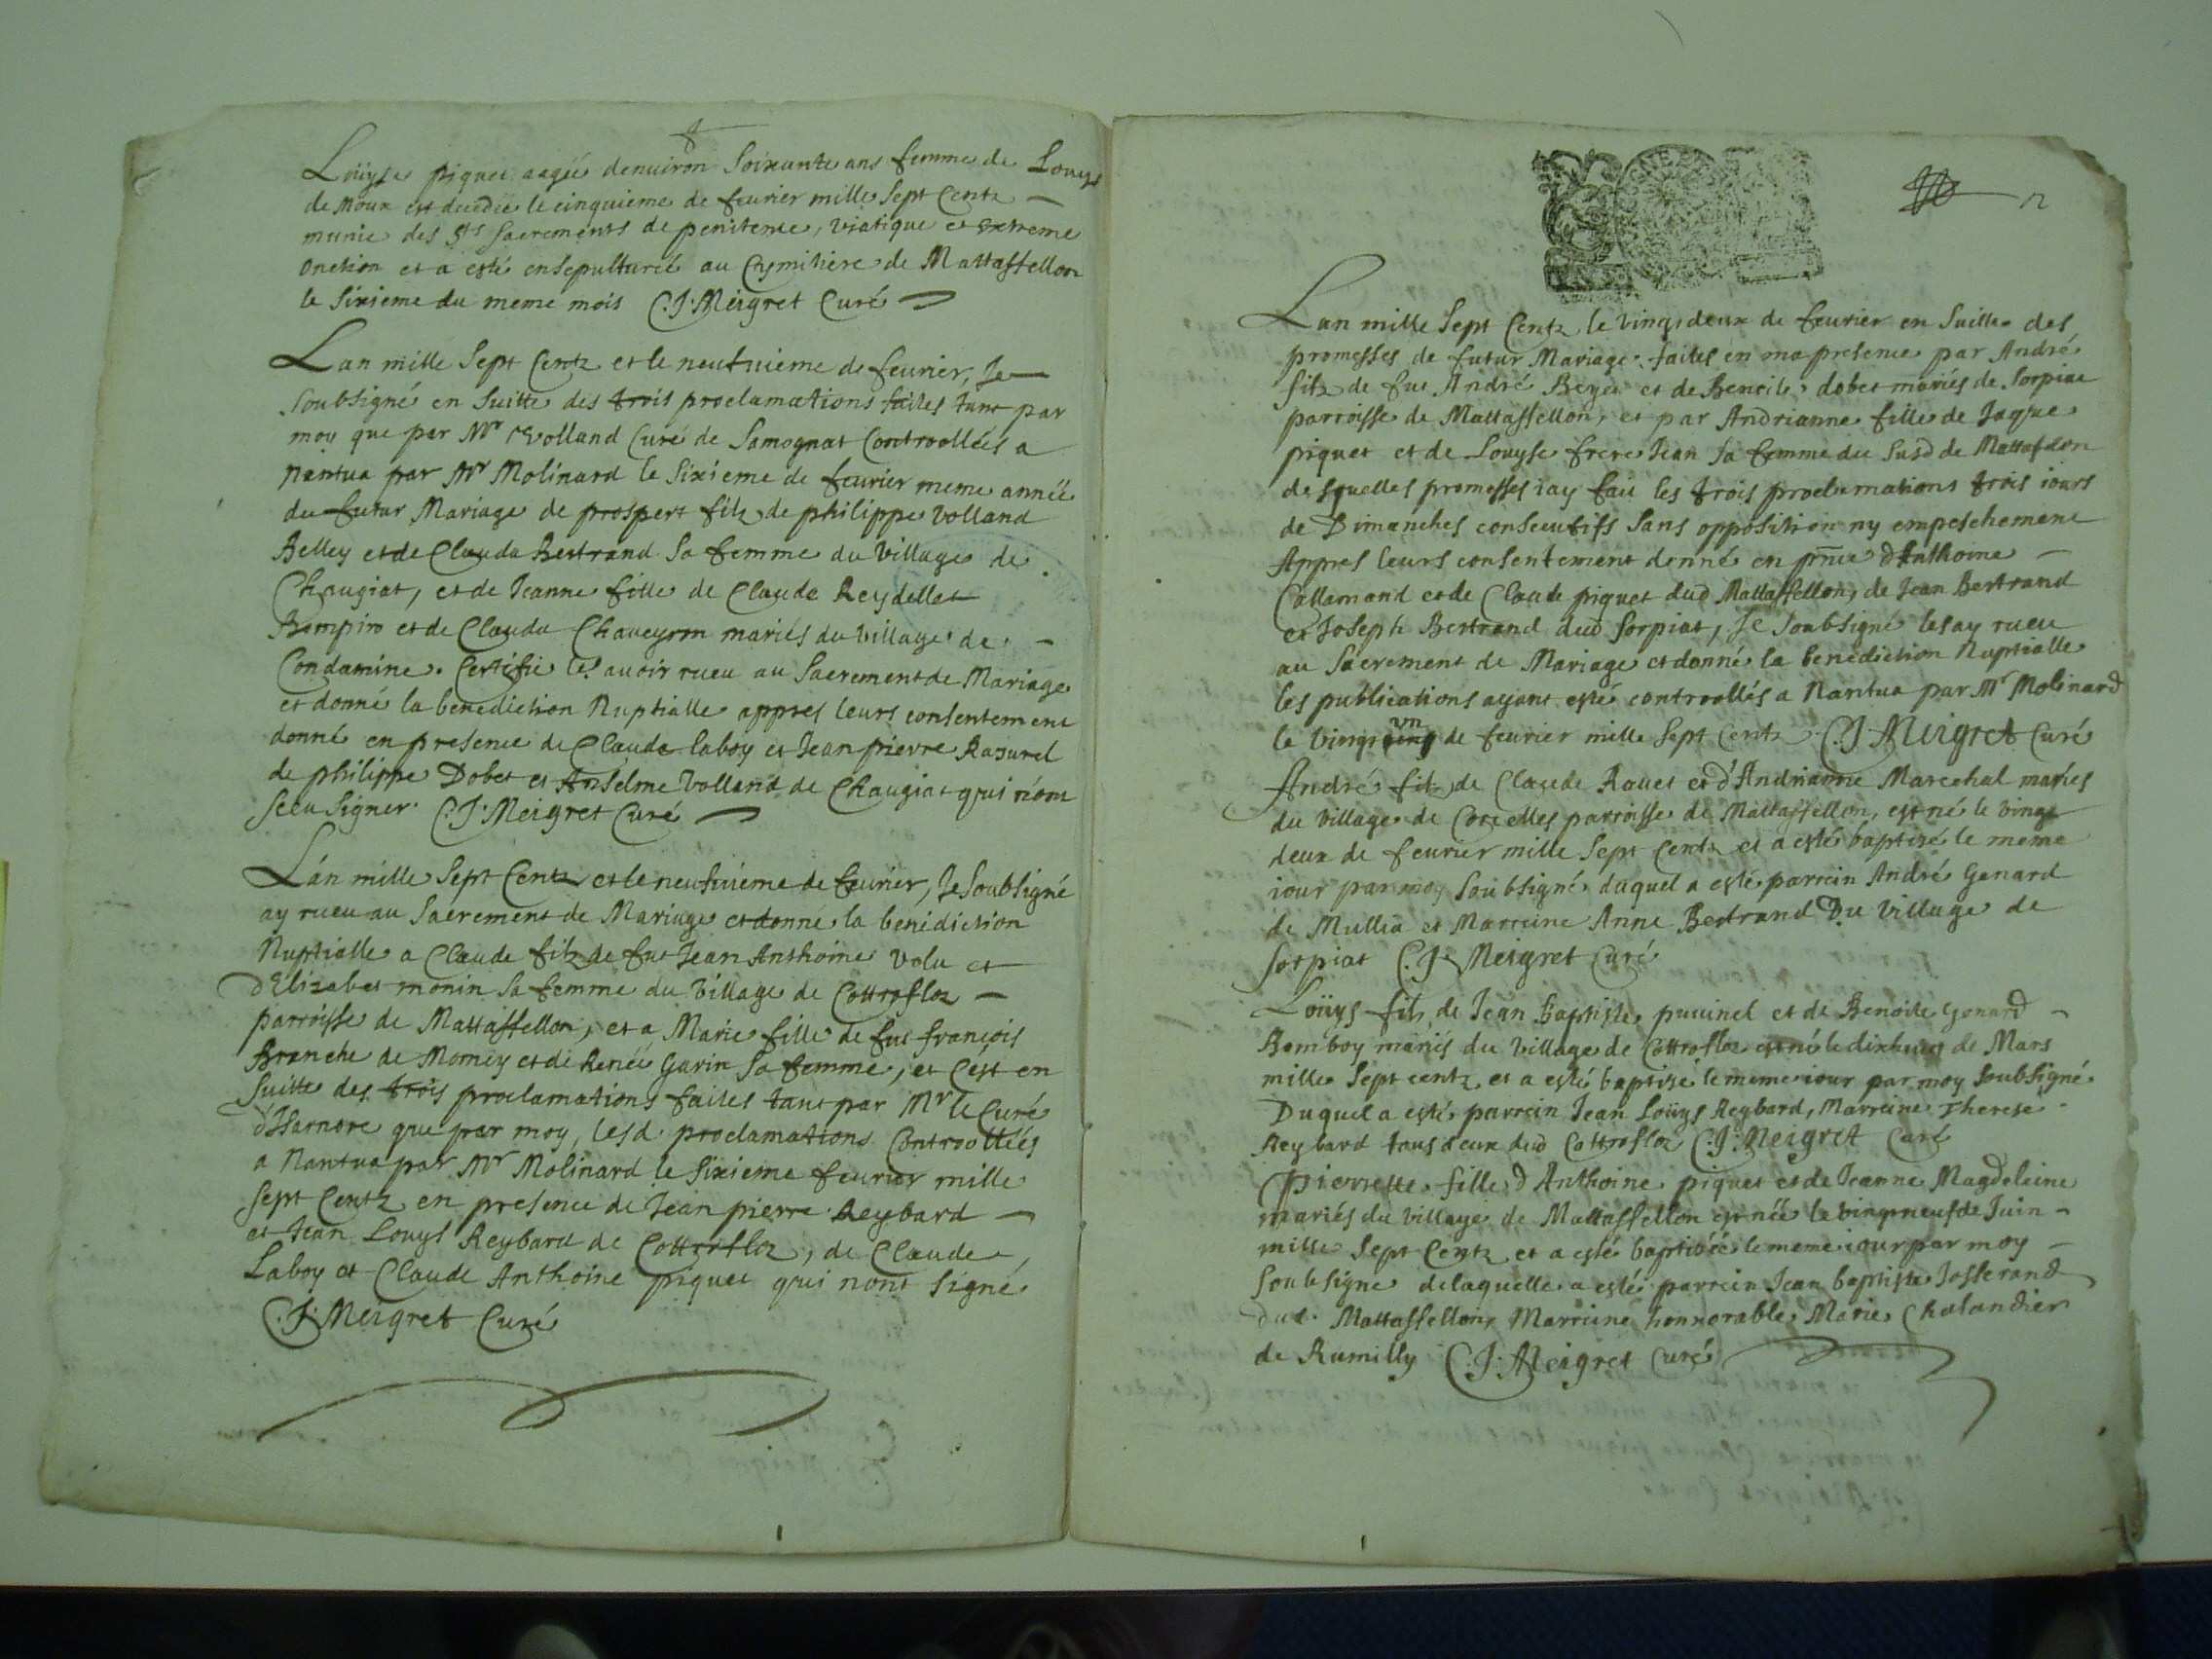 Loüyse piquet aagéé denuiron Soixante ans femme de Louys
de moux est decedée le cinquieme de feurier mille Sept Centz
munie des Sts Sacrements de penitence, viatique et extreme
onction et a esté ensepulturéé au Cymitiere de Mattaffellon
le Sixieme du meme mois C. J. Meigret Curé
Lan mille Sept Centz et le neufuieme de feurier, Je
Soubsigné en Suitte des trois proclamations faites tant par
moy que par Mr Volland Curé de Samognat Controollées a
Nantua par Mr Molinard le Sixieme de feurier meme annéé
du futur Mariage de prospert filz de philippe Volland
Belley et de Clauda Bertrand Sa femme du Village de
Chaugiat, et de Jeanne fille de Claude Reydellet
Bompiro et de Clauda Chaueyron mariés du Village de
Condamine. Certifie les auoir rueu au Sacrement de Mariage
et donné la benediction Nuptialle appres leurs consentement
donné en presence de Claude Laboy et Jean pierre Rasurel
de philippe Dobet et Anselme Volland de Chaugiat qui nont
Sceu Signer. C. J. Meigret Curé
Lán mille Sept Centz et le neufuieme de feurier, Je Soubsigné
ay rueu au Sacrement de Mariage et donné la benediction
Nuptialle a Claude filz de fut Jean Anthoine Volu et
d'Elizabet monin Sa femme du Village de Cottrofloz
parroisse de Mattaffellon, et a Marie fille de fut françois
Branche de Momey et de Renéé Garin Sa femme, et C'ést en
Suitte des trois proclamations faites tant par Mr le Curé
d'Isarnore que par moy, lesd. proclamations Controolléés
a Nantua par Mr Molinard le Sixieme feurier mille
Sept Centz en presence de Jean pierre Reybard
et Jean Louys Reybard de Cottrofloz, de Claude
Laboy et Claude Anthoine piquet qui nont Signé
C. J. Meigret Curé
n
Lan mille Sept Centz le vingtdeux de feurier en Suitte des
promesses de futur Mariage faites en ma presence par André
filz de fut André Beyet et de Benoite dobet mariés de Sorpiat
parroisse de Mattassellon, et par Andrianne fille de Jaque
piquet et de Louyse frere Jean Sa femme du Susd de Mattasellon
desquelles promesses iay fait les trois proclamations trois iours
de Dimanches consecutifs Sans opposition ny empeschement
Appres leurs consentement donné en pnce d'Anthoine
Callamand et de Claude piquet dud Mattassellon, de Jean Bertrand
et Joseph Bertrand dud Sorpiat, Je Soubsigné les ay rueu
au Sacrement de Mariage et donné la benediction Nuptialle
les publications ayant esté controollés a Nantua par Mr Molinard
le vingt un de feurier mille Sept Centz C. J. Meigret Curé
André filz de Claude Rouet et d'Andrianne Marcehal mariés
du Village de Corcelles parroisse de Mattassellon, est né le vingt
deux de feurier mille Sept Centz et a esté baptizé le meme
iour par moy Soubsigné duquel a esté parrein André Genard
de Mullia et Marreine Anne Bertrand Du Village de
Sorpiat C. J. Meigret Curé
Loüys filz de Jean Baptiste pucinel et de Benoite Genard
Bomboy mariés du Village de Cottrofloz est né le dixhuit de Mars
mille Sept centz et a esté baptizé le meme iour par moy Soubsigné
Duquel a esté parrein Jean Loüys Reybard, Marreine Therese
Reybard tous deux dud Cottrofloz C. J. Meigret Curé
Pierrette fille d'Anthoine piquet et de Jeanne Magdeleine
mariés du Village de Mattassellon est néé le vingtneuf de Juin
mille Sept Centz et a esté baptizéé le meme iour par moy
Soubsigné de laquelle a esté parrein Jean baptiste Josserand
dud. Mattassellon, Marreine honnorable Marie Chalandier
de Rumilly C. J. Meigret Curé